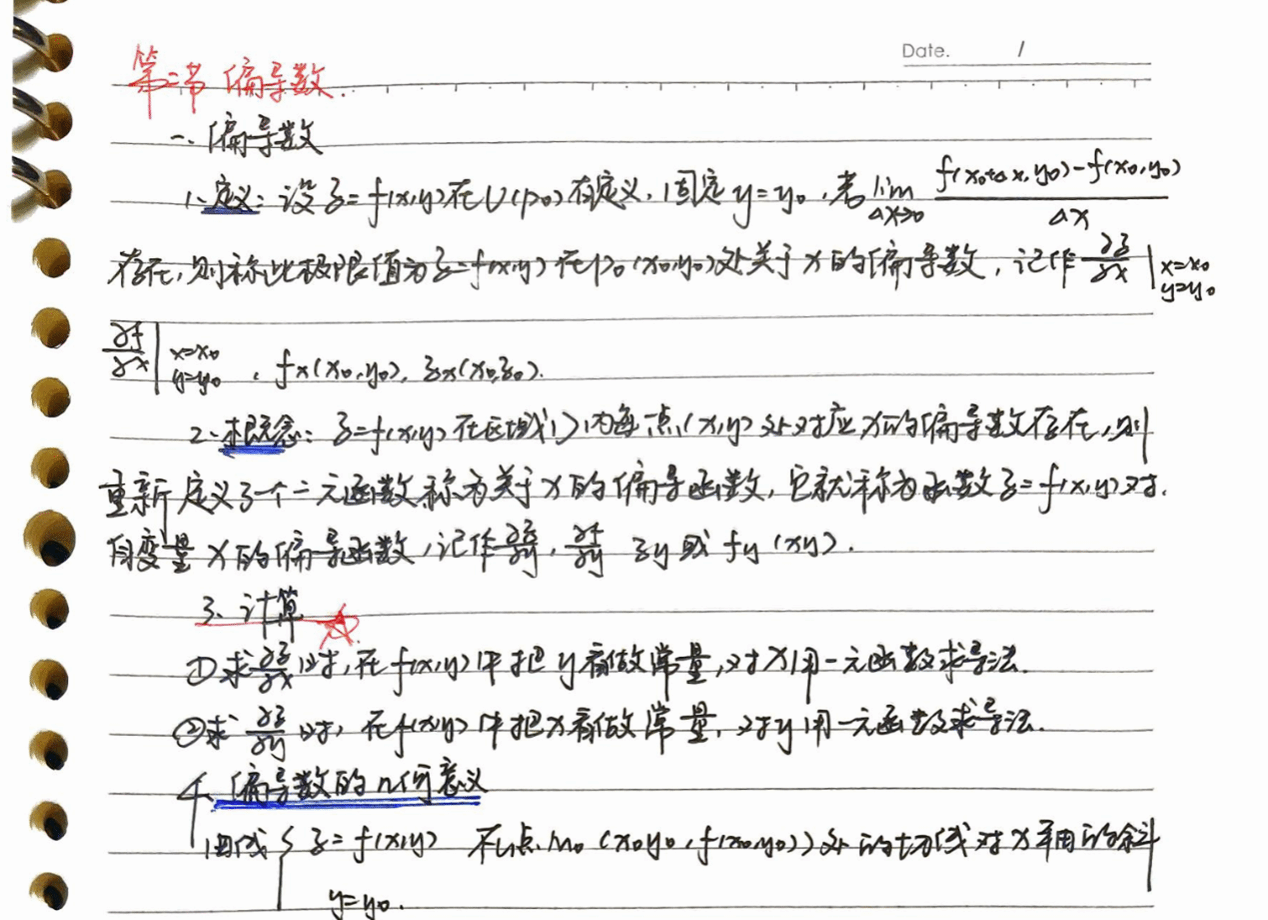 Date. /
第二节 偏导数.
一. 偏导数
1、定义：设z=f(x,y)在U(p₀)有定义，固定y=y₀，若lim Δx→0 f(x₀+Δx,y₀)-f(x₀,y₀) / Δx
存在，则称此极限值为z=f(x,y)在p₀(x₀,y₀)处关于x的偏导数，记作 ∂z/∂x | x=x₀ y=y₀
∂f/∂x | x=x₀ y=y₀ ，fx(x₀,y₀)，zx(x₀,z₀).
2、概念：z=f(x,y)在区域D内每一点(x,y)处对应x的偏导数存在，则
重新定义了一个二元函数称为关于x的偏导函数，它就称为函数z=f(x,y)对
自变量x的偏导函数，记作∂z/∂y，∂f/∂y zy或fy(xy).
3、计算
①求∂z/∂x时，在f(x,y)中把y看做常量，对x用一元函数求导法.
②求∂z/∂y时，在f(x,y)中把x看做常量，对y用一元函数求导法.
4、偏导数的几何意义
曲线{ z=f(x,y) 在点M₀(x₀y₀,f(x₀,y₀))处的切线对x轴的斜
y=y₀.